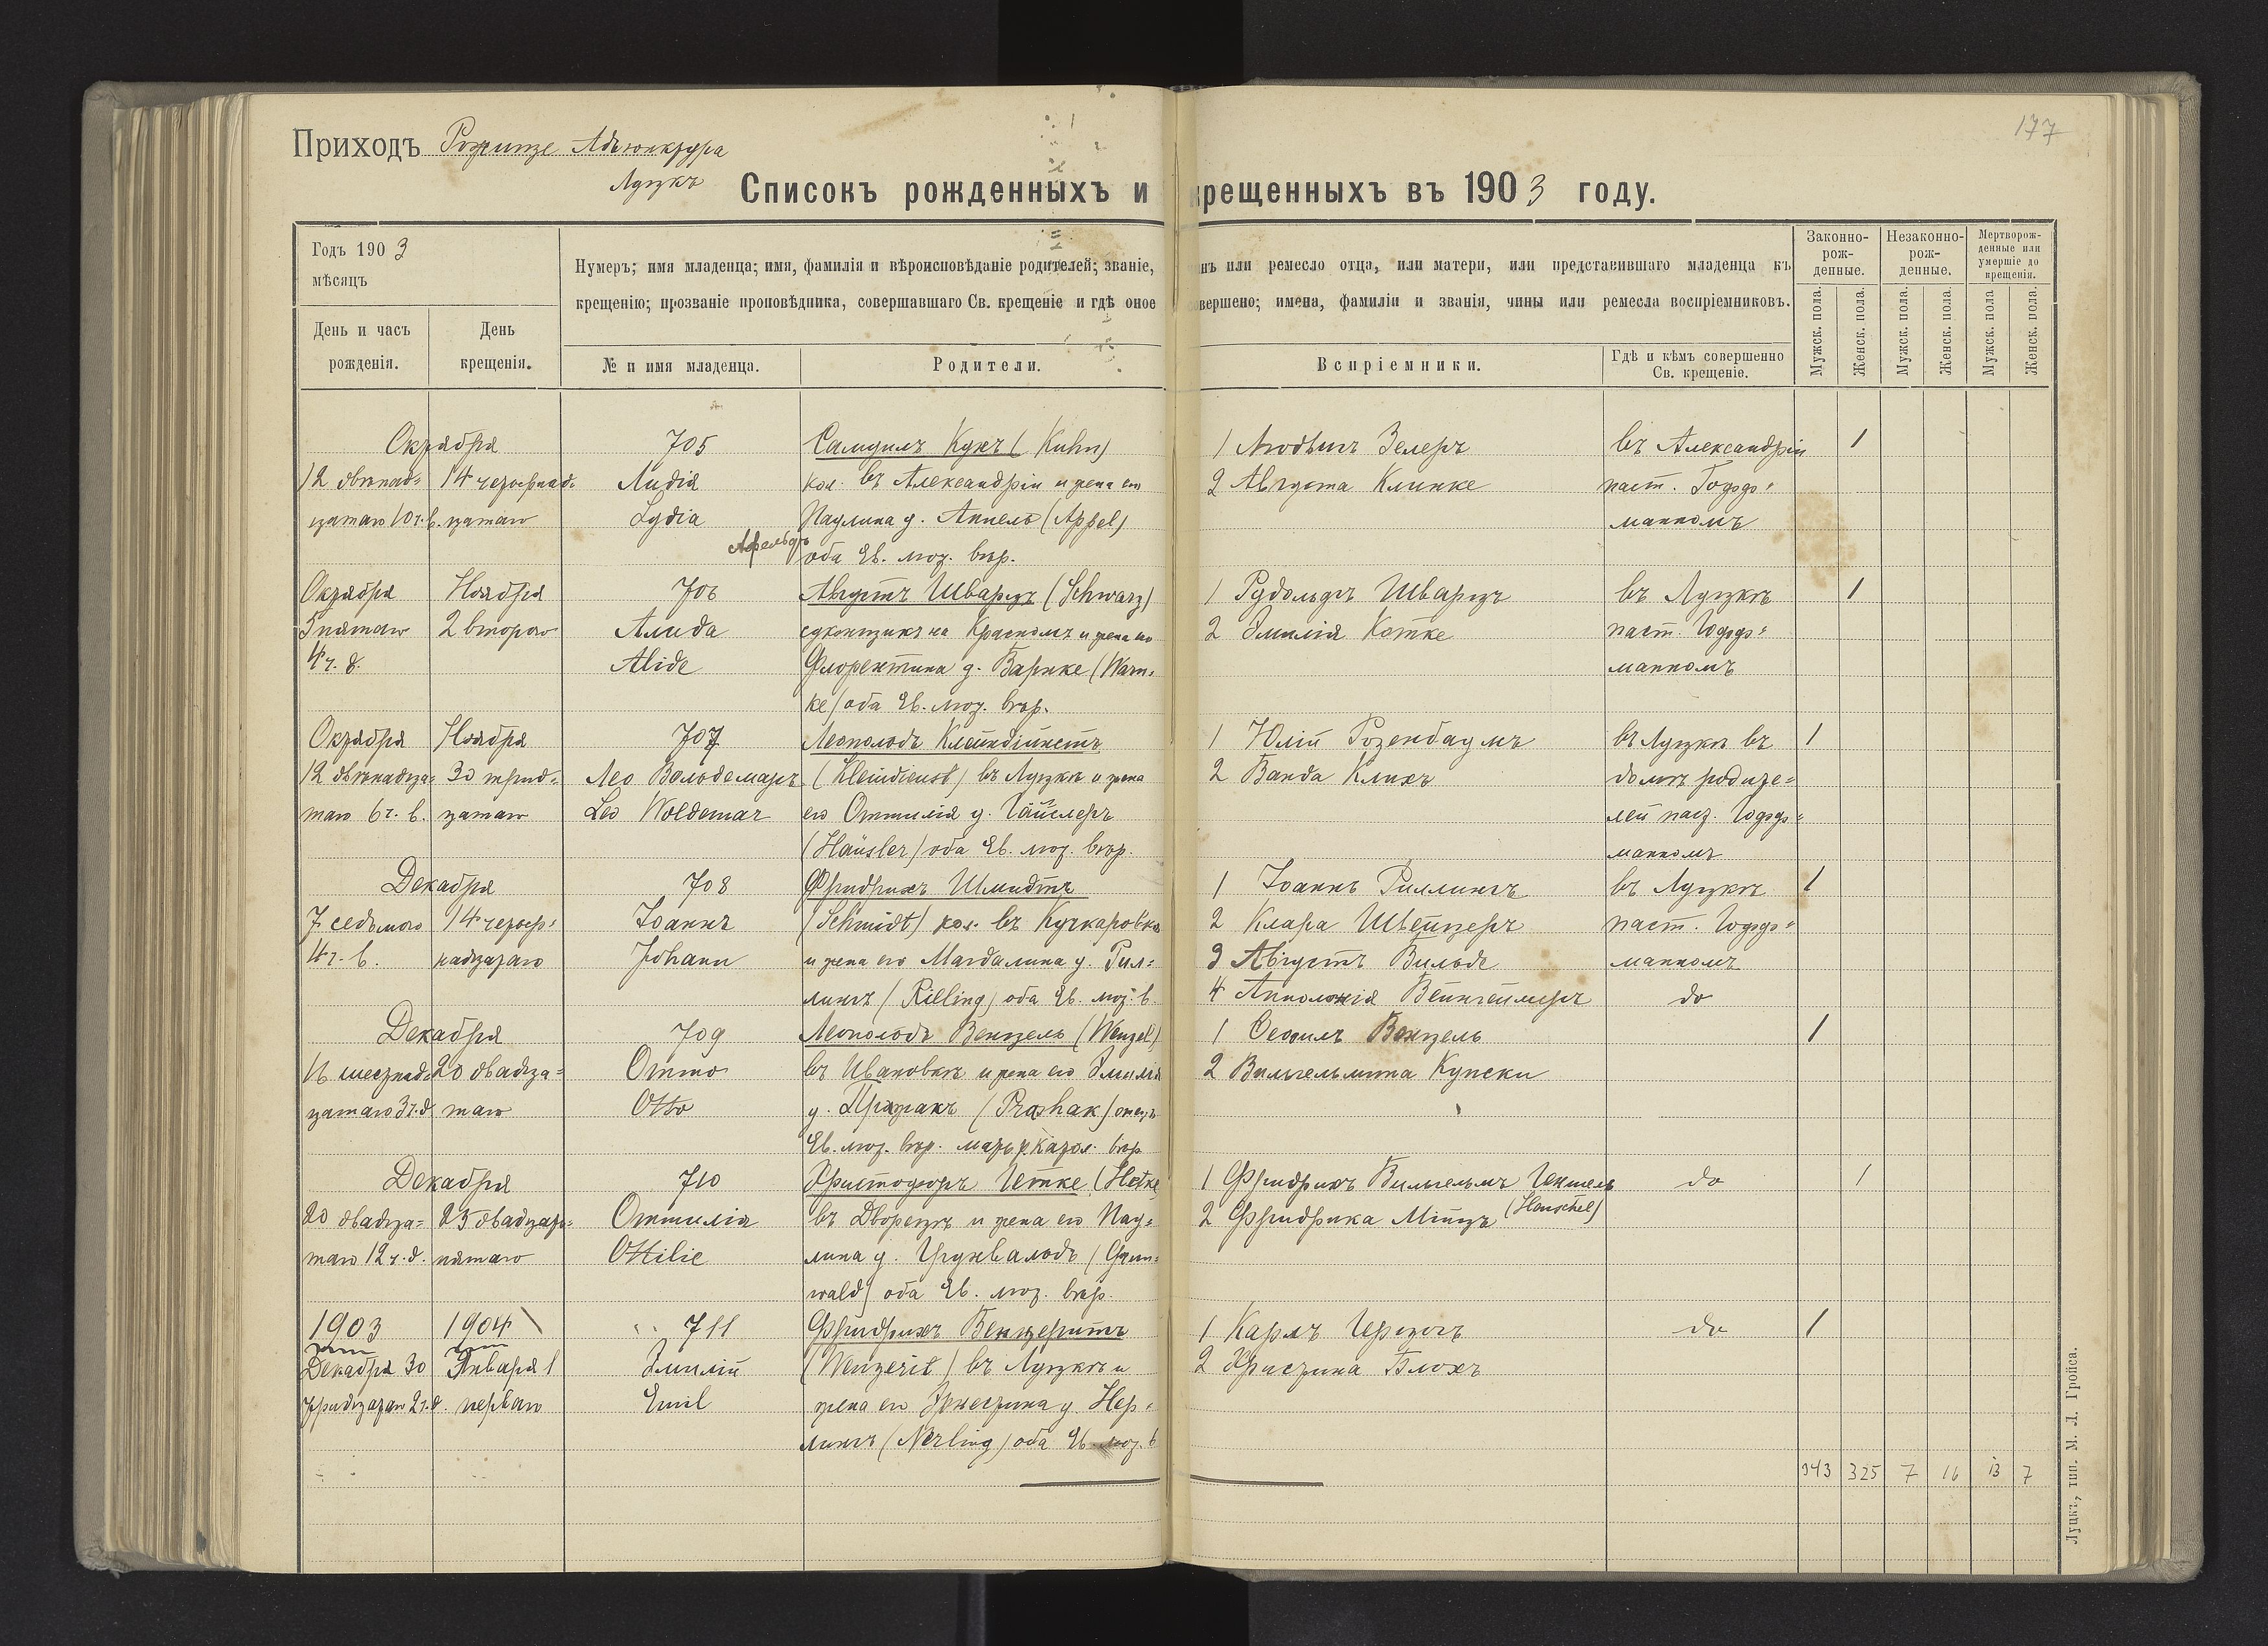 177
Приходъ Рожище Адъюнктура
Луцкъ
Списокъ рожденныхъ и крещенныхъ въ 1903 году.
Годъ 1903
мѣсяцъ
День и часъ рожденія.
День крещенія.
Нумеръ; имя младенца; имя, фамилія и вѣроисповѣданіе родителей; званіе, чинъ или ремесло отца, или матери, или представившаго младенца къ
крещенію; прозваніе проповѣдника, совершавшаго Св. крещеніе и гдѣ оное совершено; имена, фамиліи и званія, чины или ремесла воспріемниковъ.
№ и имя младенца.
Родители.
Вспріемники.
Гдѣ и кѣмъ совершенно Св. крещеніе.
Законно-рож-денные.
Незаконно-рож-денные.
Мертворож-денные или умершіе до крещенія.
Мужск. пола.
Женск. пола.
Мужск. пола.
Женск. пола.
Мужск. пола
Женск. пола.
Октября 705 Самуилъ Кунъ (Kuhn) 1 Людвигъ Зелеръ въ Александріи 1
12 двѣнад- 14 четырнад- Лидія кол. въ Александріи и жена его 2 Августа Клинке паст. Годдо-
цатаго 10 ч. в. цатаго Lydia Паулина у. Аппель (Appel) манномъ
оба Ев. лют. вѣр.
Октября Ноября 706 Августъ Шварцъ (Schwarz) 1 Рудольфъ Шварцъ въ Луцкѣ 1
5 пятаго 2 второго Алида суконщикъ на Красномъ и жена его 2 Эмилія Котке паст. Годдо-
4 ч. д. Alide Флорентина у. Варнке (Warn-
манномъ
ke) оба Ев. лют. вѣр.
Октября Ноября 707 Леополодъ Клейндинстъ 1 Юлій Розенбаумъ въ Луцкѣ въ 1
12 двѣнадца- 30 трид- Лео Вольдемаръ (Kleindienst) въ Луцкѣ и жена 2 Ванда Клихъ домѣ родите-
таго 6 ч. в. цатаго Leo Woldemar его Оттилія у. Гайслеръ лей паст. Годдо-
(Häusler) оба Ев. лют. вѣр. манномъ
Декабря 708 Фридрихъ Шмидтъ 1 Іоаннъ Риллингъ въ Луцкѣ 1
7 седьмого 14 четыр- Іоаннъ (Schmidt) кол. въ Кучкаровкѣ 2 Клара Швейцеръ паст. Годдо-
4 ч. в. надцатаго Johann и жена его Магдалина у. Рил- 3 Августъ Вильде манномъ
лингъ (Rilling) оба Ев. лют. в. 4 Апполонія Вейнгеймеръ do
Декабря 709 Леополодъ Венцель (Wenzel) 1 Теофилъ Венцель 1
16 шестнад- 20 двадца- Отто въ Ивановкѣ и жена его Эмилія 2 Вильгельмина Купски
цатаго 3 ч. д. таго Otto у. Пражакъ (Prashak) отецъ
Ев. лют. вѣр. мать р. катол. вѣр.
Декабря 710 Христофоръ Гетке (Hetke 1 Фридрихъ Вильгельмъ Геншель do 1
20 двадца- 25 двадцать- Оттилія въ Дворецъ и жена его Пау- 2 Фридрика Минцъ (Henschel)
таго 12 ч. д. пятаго Ottilie лина у. Грунвалодъ (Grun-
wald) оба Ев. лют. вѣр.
1903 1904 711 Фридрихъ Венцеритъ 1 Карлъ Герцогъ do 1
Декабря 30 Января 1 Эмилій (Wenzerit) въ Луцкѣ и 2 Христина Блохъ
тридцатаго 2 ч. д. перваго Emil жена его Эрнестина у. Нер-
лингъ (Nerling) оба Ев. лют. в.
343 325 7 16 13 7
Луцкъ, тип. М. Л. Гройса.